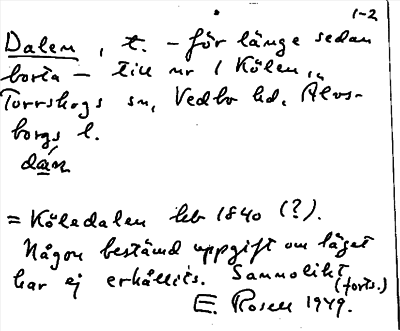 1-2
Dalen, t. – för länge sedan
borta – till nr 1 Kölen,
Torrskogs sn, Vedbo hd, Älvs-
borgs l.
dán
= Köledalen hb 1840 (?).
Någon bestämd uppgift om läget
har ej erhållits. Sannolikt
(forts.)
E. Rosell 1949.